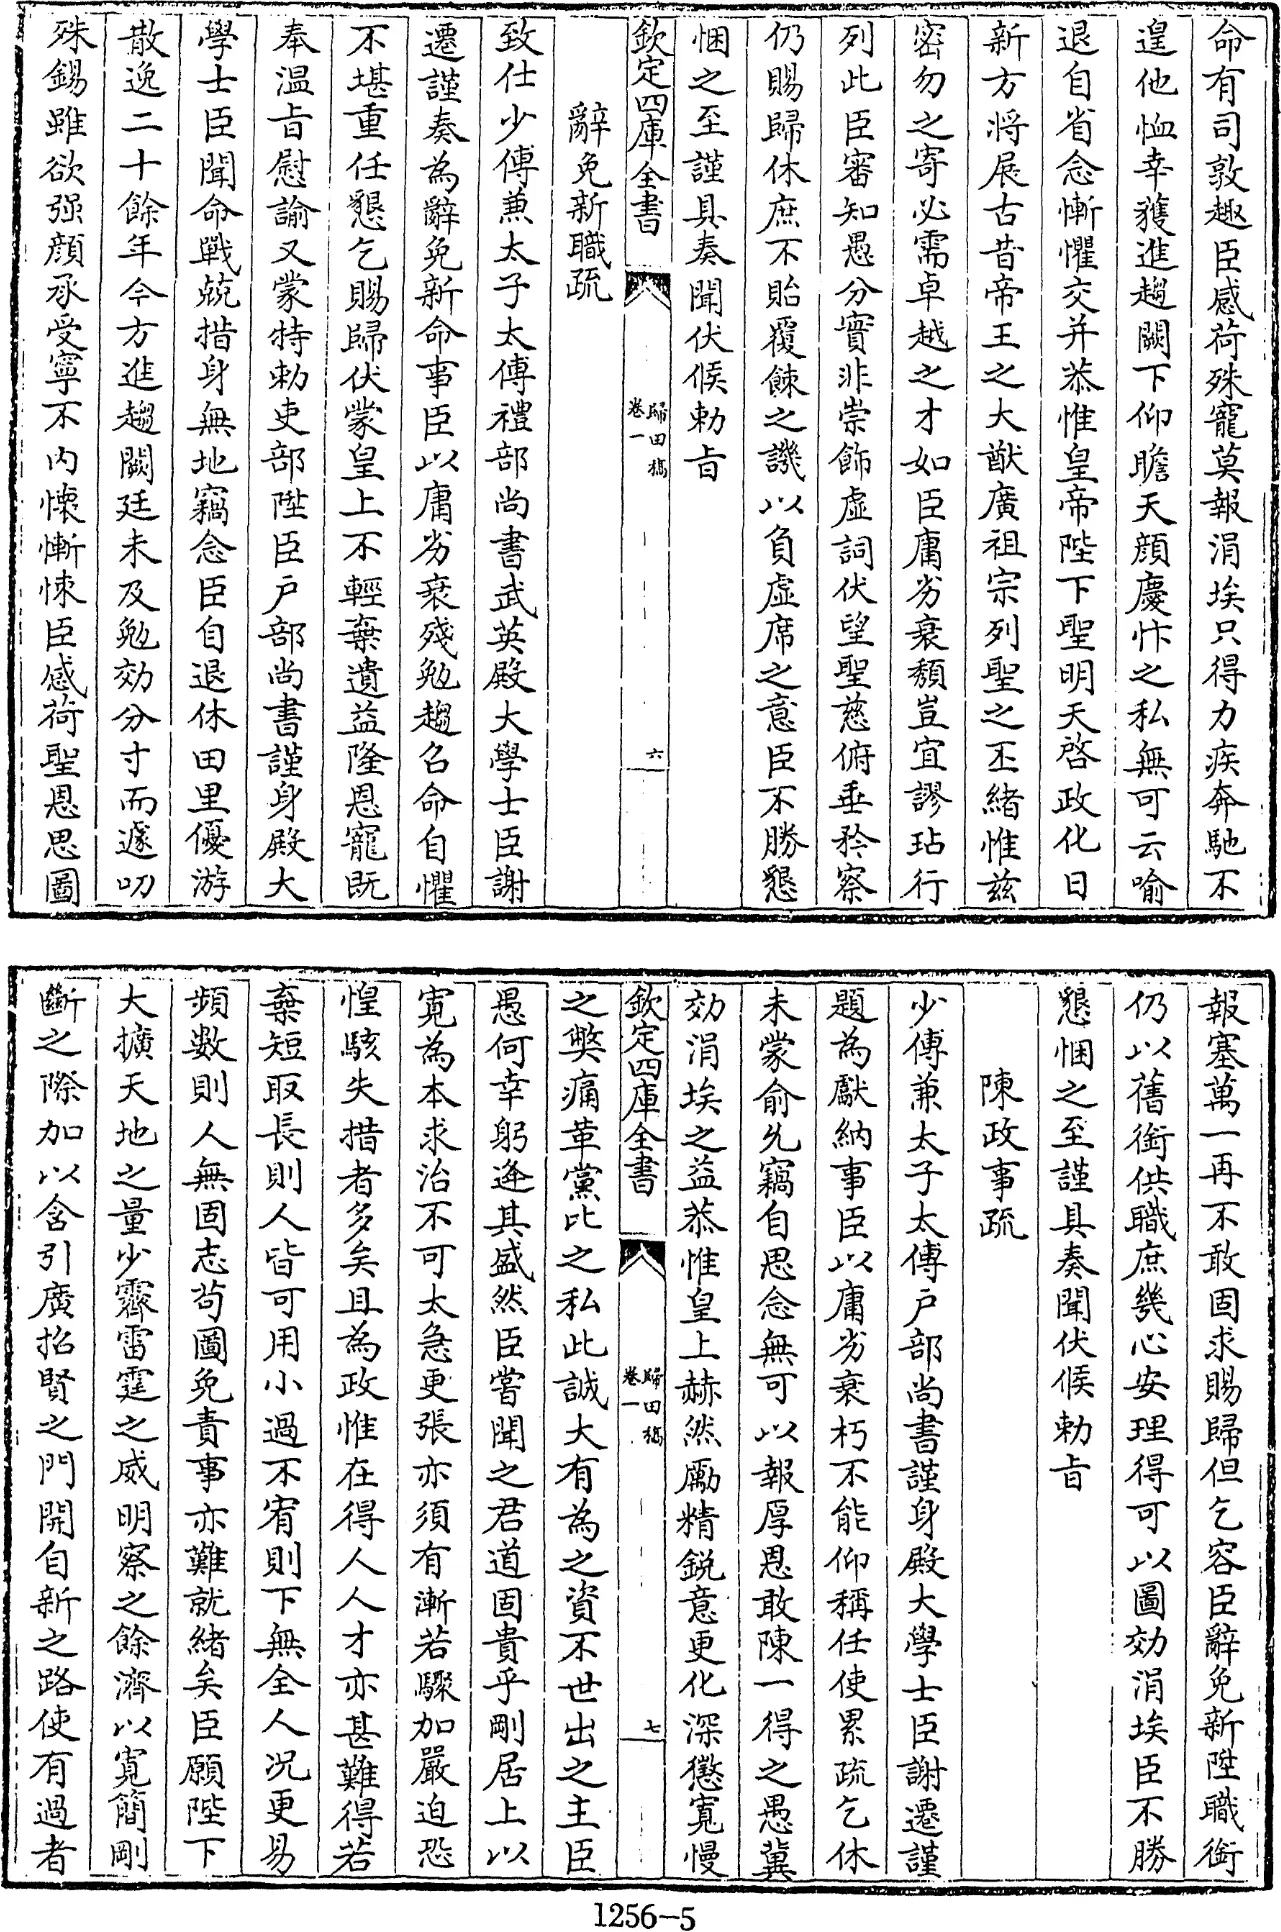 命有司敦趣臣感荷殊寵莫報涓埃只得力疾奔馳不
遑他恤幸獲進趨闕下仰瞻天顔慶忭之私無可云喻
退自省念慚懼交并恭惟皇帝陛下聖明天啓政化日
新方將展古昔帝王之大猷廣祖宗列聖之丕緒惟兹
密勿之寄必需卓越之才如臣庸劣衰頽豈宜謬玷行
列此臣審知愚分實非崇飾虚詞伏望聖慈俯垂矜察
仍賜歸休庶不貽覆餗之譏以負虚席之意臣不勝懇
悃之至謹具奏聞伏候勅旨
欽定四庫全書
歸田稿
卷一
六
辭免新職疏
致仕少傅兼太子太傅禮部尚書武英殿大學士臣謝
遷謹奏為辭免新命事臣以庸劣衰殘勉趨召命自懼
不堪重任懇乞賜歸伏蒙皇上不輕棄遺益隆恩寵既
奉温旨慰諭又蒙特勅吏部陞臣户部尚書謹身殿大
學士臣聞命戰兢措身無地竊念臣自退休田里優游
散逸二十餘年今方進趨闕廷未及勉効分寸而遽叨
殊錫雖欲强顔承受寧不内懐慚悚臣感荷聖恩思圖
報塞萬一再不敢固求賜歸但乞容臣辭免新陞職銜
仍以舊銜供職庶幾心安理得可以圖効涓埃臣不勝
懇悃之至謹具奏聞伏候勅旨
陳政事疏
少傅兼太子太傅户部尚書謹身殿大學士臣謝遷謹
題為獻納事臣以庸劣衰朽不能仰稱任使累疏乞休
未蒙俞允竊自思念無可以報厚恩敢陳一得之愚冀
効涓埃之益恭惟皇上赫然勵精鋭意更化深懲寛慢
欽定四庫全書
歸田稿
卷一
七
之弊痛革黨比之私此誠大有為之資不世出之主臣
愚何幸躬逢其盛然臣嘗聞之君道固貴乎剛居上以
寛為本求治不可太急更張亦須有漸若驟加嚴迫恐
惶駭失措者多矣且為政惟在得人人才亦甚難得若
棄短取長則人皆可用小過不宥則下無全人况更易
頻數則人無固志苟圖免責事亦難就緒矣臣願陛下
大擴天地之量少霽雷霆之威明察之餘濟以寛簡剛
斷之際加以含引廣招賢之門開自新之路使有過者
1256-5